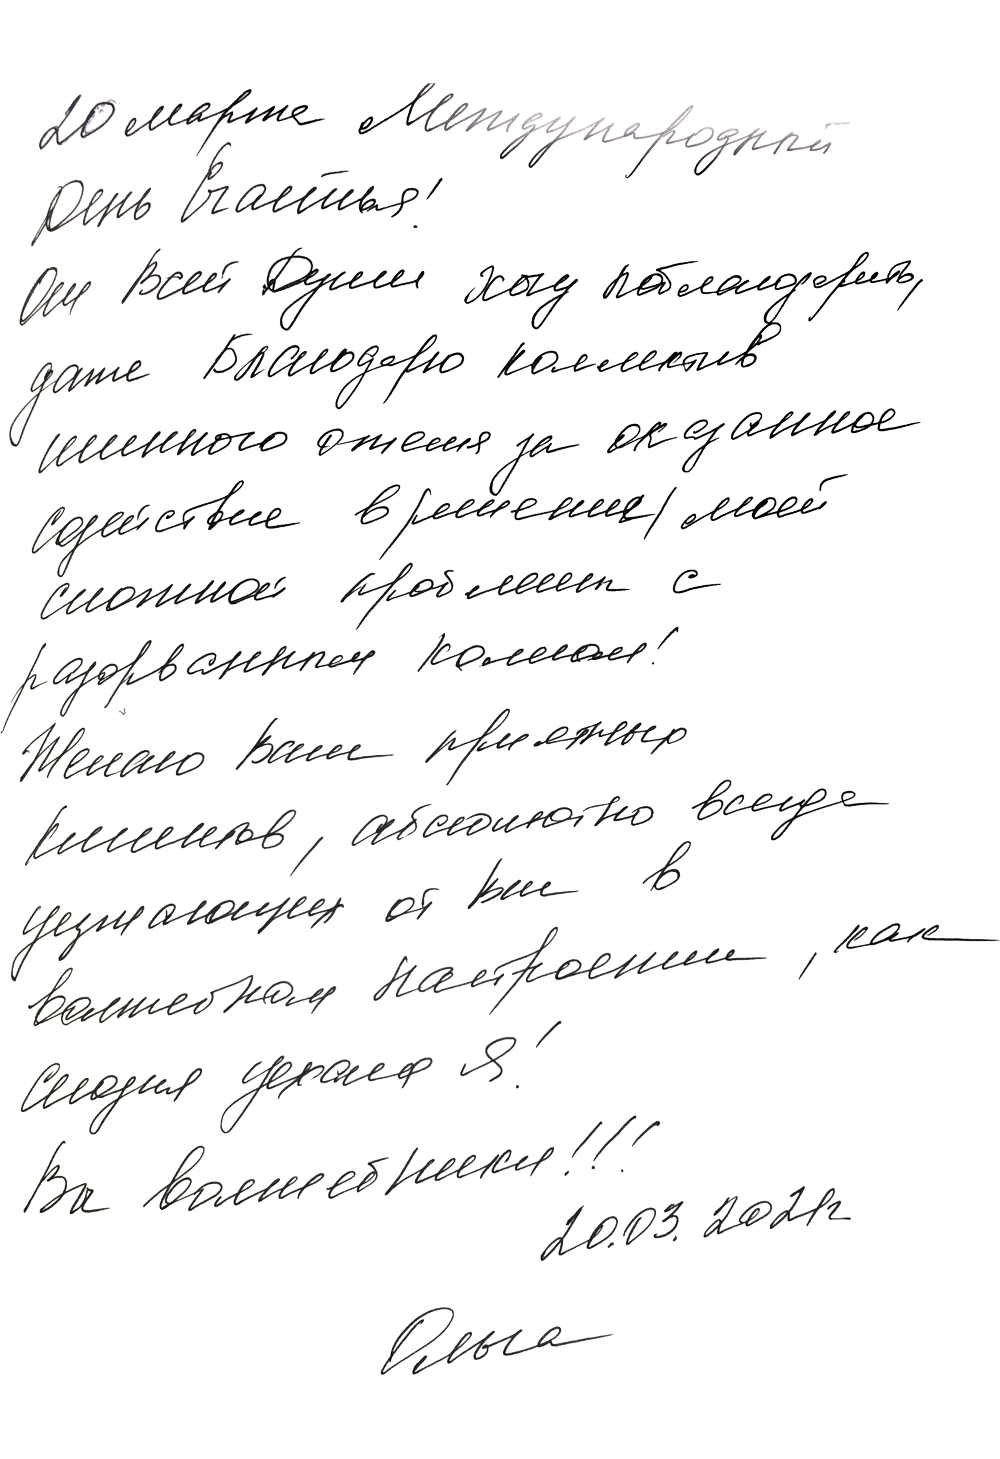 20 марта Международный
День Счастья!
От Всей Души хочу поблагодарить,
даже Благодарю коллектив
шинного отеля за оказанное
содействие в решении моей
сложной проблемы с
разорванным колесом!
Желаю Вам приятных
клиентов, абсолютно всегда
уезжающих от Вас в
волшебном настроении, как
сегодня уехала Я!
Вы волшебники!!!
20.03.2021г
Ольга